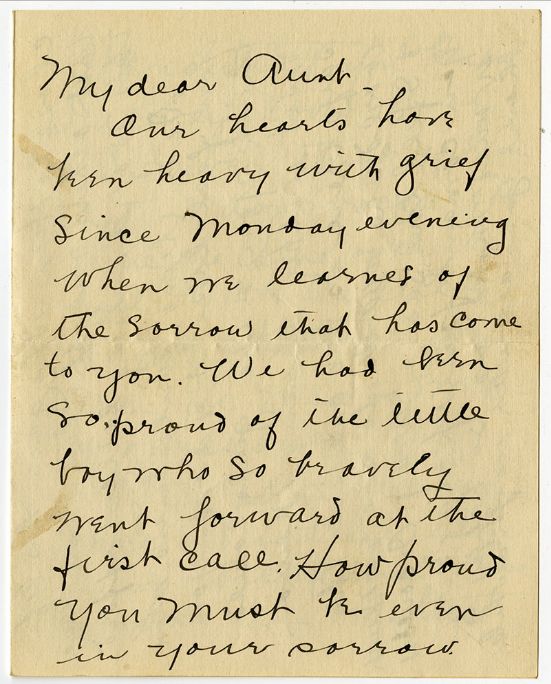 My dear Aunt -
Our hearts have
been heavy with grief
since Monday evening
when we learned of
the sorrow that has come
to you. We had been
so proud of the little
boy who so bravely
went forward at the
first call. How proud
you must be even
in your sorrow.